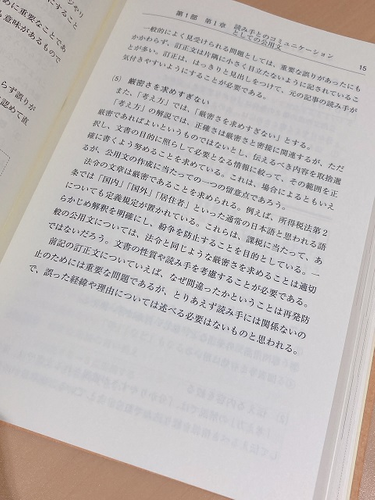 第1部 第1章 読み手とのコミュニケーション
としての公用文
15
一般的によく見受けられる問題としては、重要な誤りがあったにも
かかわらず、訂正文は片隅に小さく目立たないように記されているこ
とが多い。訂正は、はっきりと見出しをつけて、元の記事の読み手が
気付きやすいようにすることが必要である。
(5) 厳密さを求めすぎない
また、「考え方」では、「厳密さを求めすぎない」とする。
「考え方」の解説では、正確さは厳密さと密接に関連するが、ただ
厳密であればよいというものではないとし、伝えるべき内容を取捨選
択し、文書の目的に照らして必要となる情報に絞って、その範囲を正
確に書くよう努めることを求めている。これは、場合によるともいえ
るが、公用文の作成に当たっての一つの留意点であろう。
法令の文章は厳密であることを求められる。例えば、所得税法第2
条では「国内」「国外」「居住者」といった通常の日本語と思われる語
についても定義規定が置かれている。これらは、課税に当たって、あ
らかじめ解釈を明確にし、紛争を防止することを目的としている。一
般の公用文については、法令と同じような厳密さを求めることは適切
ではないだろう。文書の性質や読み手を考慮することが必要である。
前記の訂正文についていえば、なぜ間違ったかということは再発防
止のためには重要な問題であるが、とりあえず読み手には関係ないの
で、誤った経緯や理由については述べる必要はないものと思われる。